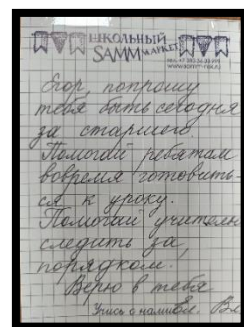 ШКОЛЬНЫЙ
SAMMМАРКЕТ
Егор, попрошу
тебя быть сегодня
за старшего.
Помогай ребятам
вовремя готовить-
ся к уроку.
Помогай учителю
следить за
порядком.
Верю в тебя
Учись с нами